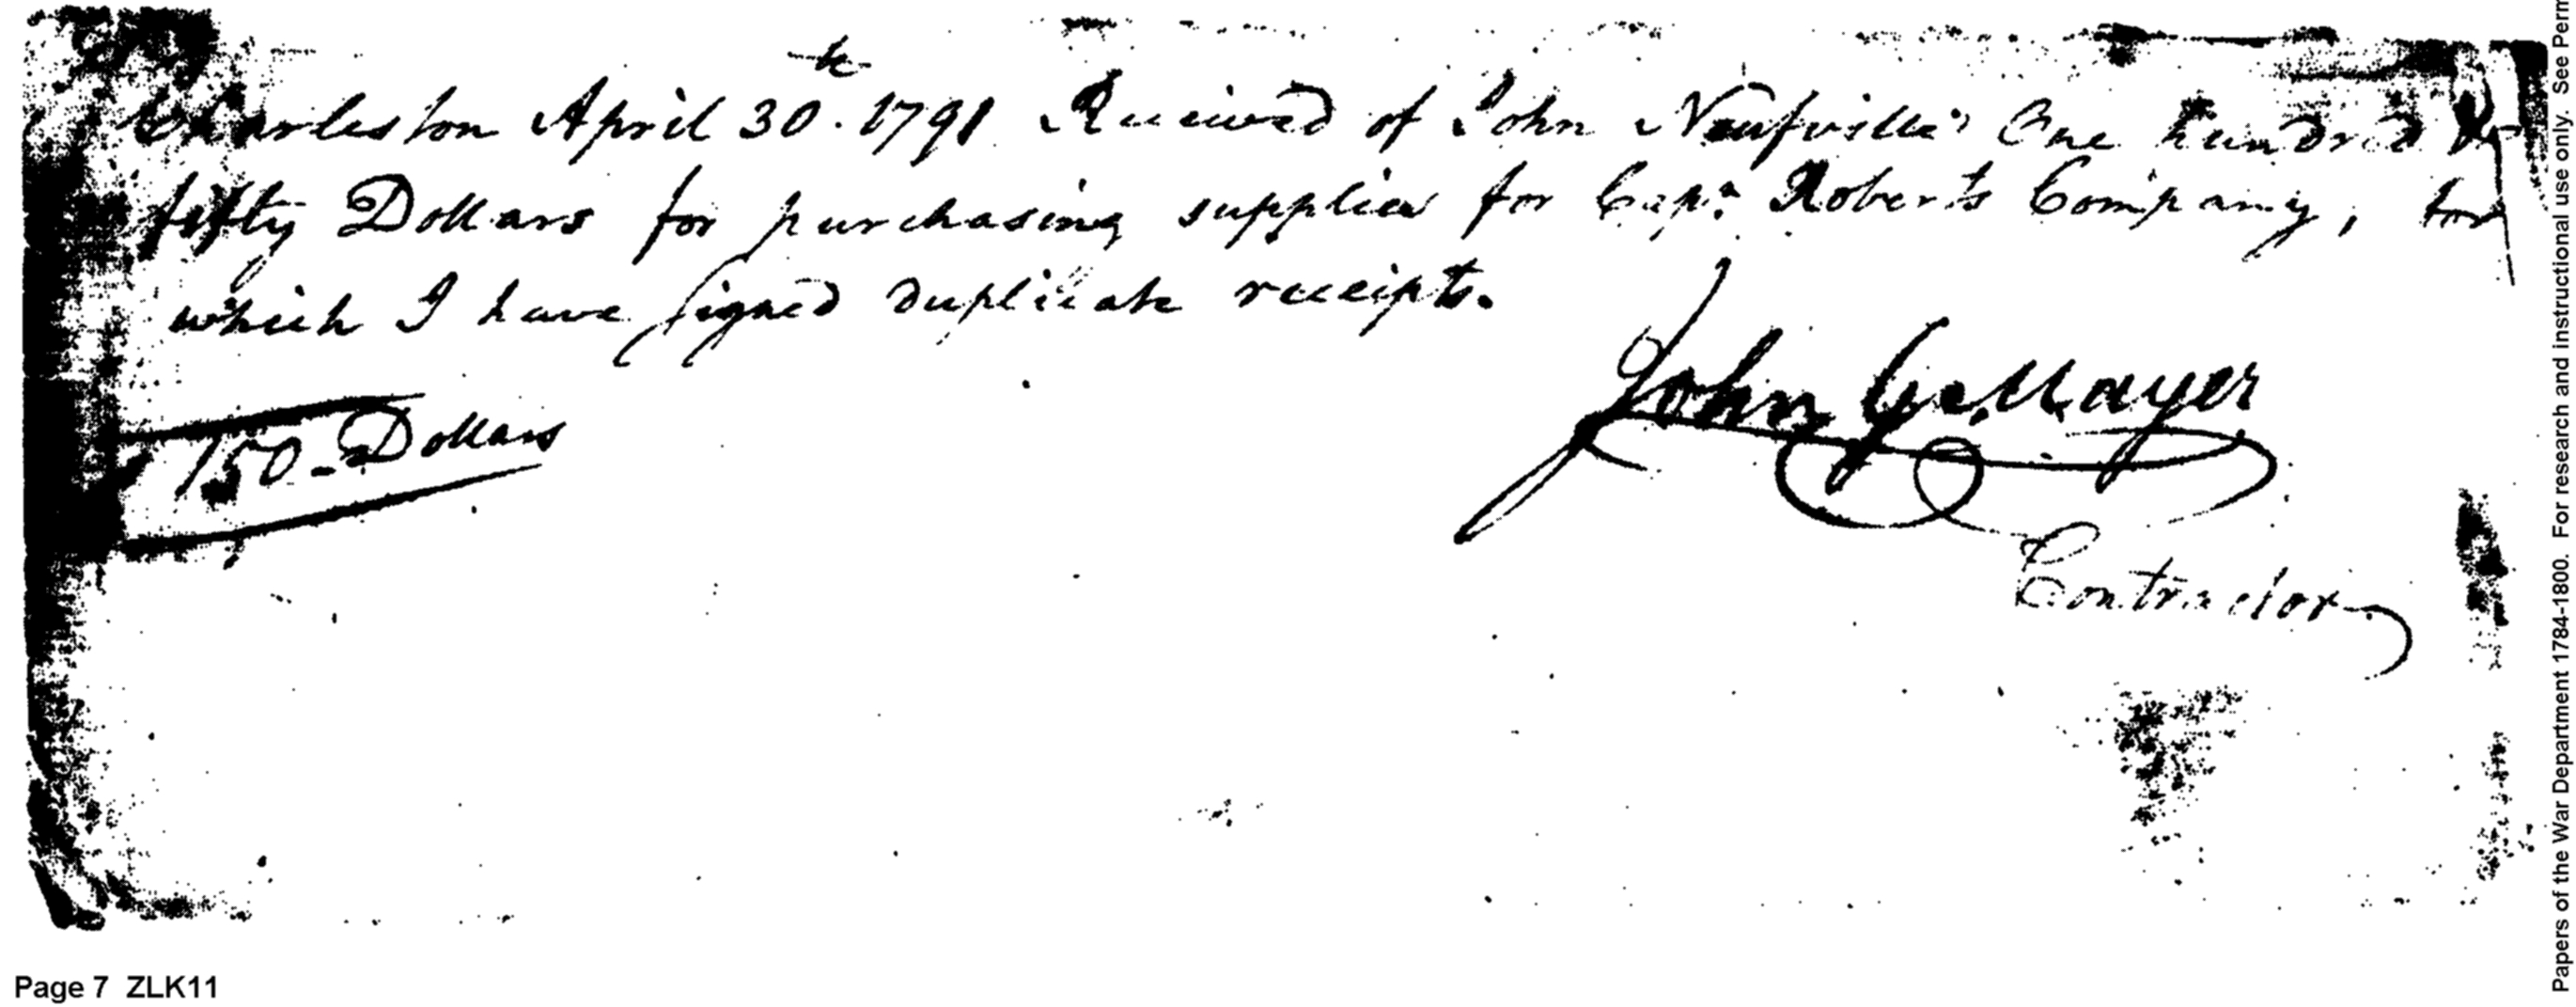 Charleston April 30th. 1791 Received of John Neufville One hundred &
fifty Dollars for purchasing supplies for Capn. Roberts Company, for
which I have signed duplicate receipts.
150 - Dollars
John G. Mayer
Contractor
Page 7 ZLK11
Papers of the War Department 1784-1800. For research and instructional use only. See Perm